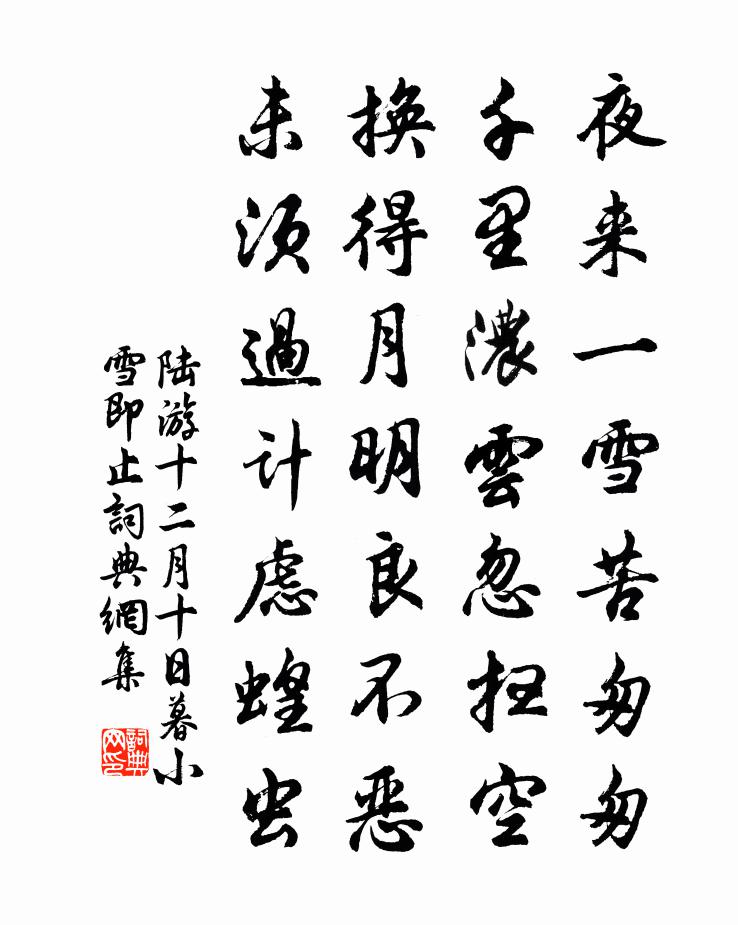 夜来一雪苦匆匆
千里濃雲忽扫空
換得月明良不恶
未須過计虑蝗虫
陆游十二月十日暮小
雪即止詞典網集
詞典
网印